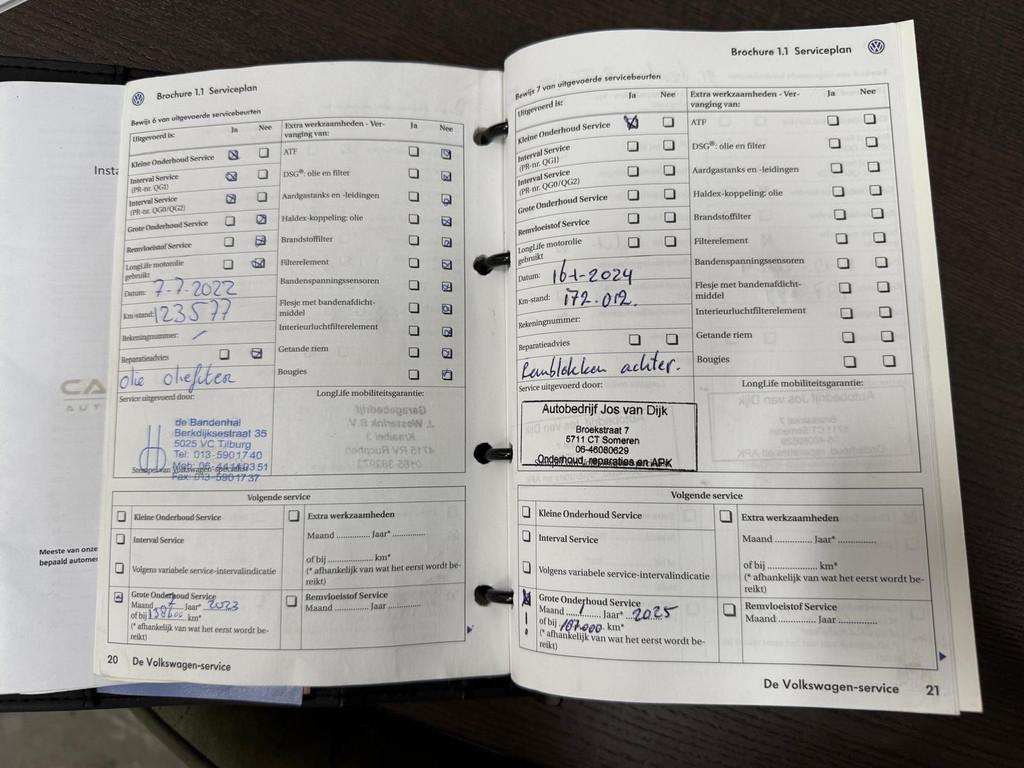 Insta
CA
AUT
Meeste van onze
bepaald automer
Brochure 1.1 Serviceplan
Bewijs 6 van uitgevoerde servicebeurten
Uitgevoerd is:
Ja Nee
Kleine Onderhoud Service
Interval Service
(PR-nr. QG1)
Interval Service
(PR-nr. QG0/QG2)
Grote Onderhoud Service
Remvloeistof Service
LongLife motorolie
gebruikt
Datum: 7-7-2022
Km-stand: 123577
Rekeningnummer: /
Reparatieadvies
olie oliefilter
Service uitgevoerd door:
de Bandenhal
Berkdijksestraat 35
5025 VC Tilburg
Tel: 013-590 17 40
Mob: 06-44 14 03 51
Stempel van Volkswagen-specialist
Fax: 013-590 17 37
Extra werkzaamheden - Ver-
vanging van:
Ja Nee
ATF
DSG®: olie en filter
Aardgastanks en -leidingen
Haldex-koppeling: olie
Brandstoffilter
Filterelement
Bandenspanningssensoren
Flesje met bandenafdicht-
middel
Interieurluchtfilterelement
Getande riem
Bougies
LongLife mobiliteitsgarantie:
Volgende service
Kleine Onderhoud Service
Interval Service
Volgens variabele service-intervalindicatie
Grote Onderhoud Service
Maand 7 Jaar* 2023
of bij 138600 km*
(* afhankelijk van wat het eerst wordt be-
reikt)
Extra werkzaamheden
Maand ............ Jaar* ............
of bij ................ km*
(* afhankelijk van wat het eerst wordt be-
reikt)
Remvloeistof Service
Maand ............ Jaar ............
20 De Volkswagen-service
Brochure 1.1 Serviceplan
Bewijs 7 van uitgevoerde servicebeurten
Uitgevoerd is:
Ja Nee
Kleine Onderhoud Service
Interval Service
(PR-nr. QG1)
Interval Service
(PR-nr. QG0/QG2)
Grote Onderhoud Service
Remvloeistof Service
LongLife motorolie
gebruikt
Datum: 16-1-2024
Km-stand: 172.012.
Rekeningnummer:
Reparatieadvies
Remblokken achter.
Service uitgevoerd door:
Autobedrijf Jos van Dijk
Broekstraat 7
5711 CT Someren
06-46080629
Onderhoud, reparaties en APK
Extra werkzaamheden - Ver-
vanging van:
Ja Nee
ATF
DSG®: olie en filter
Aardgastanks en -leidingen
Haldex-koppeling: olie
Brandstoffilter
Filterelement
Bandenspanningssensoren
Flesje met bandenafdicht-
middel
Interieurluchtfilterelement
Getande riem
Bougies
LongLife mobiliteitsgarantie:
Volgende service
Kleine Onderhoud Service
Interval Service
Volgens variabele service-intervalindicatie
Grote Onderhoud Service
Maand 1 Jaar* 2025
of bij 187.000 km*
(* afhankelijk van wat het eerst wordt be-
reikt)
Extra werkzaamheden
Maand ............ Jaar* ............
of bij ................ km*
(* afhankelijk van wat het eerst wordt be-
reikt)
Remvloeistof Service
Maand ............ Jaar ............
De Volkswagen-service 21